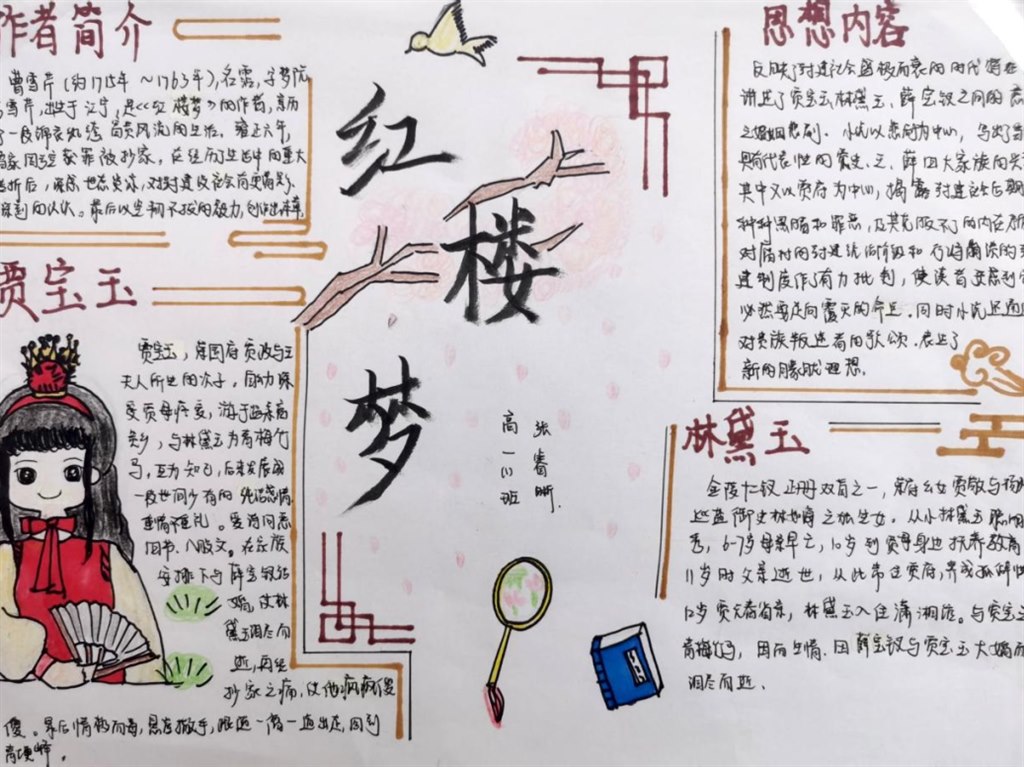 作者简介
曹雪芹(约1715年~1763年),名霑,字梦阮
雪芹,出生于江宁,是《红楼梦》的作者,
了一段锦衣纨绔、富贵风流的生活。雍正六年,
家因亏空获罪被抄家,在经历了生活中的重大
折后,深感世态炎凉,对封建社会有更清醒、
深刻的认识。最后以坚韧不拔的毅力,创作出
贾宝玉
贾宝玉,荣国府贾政与王
夫人所生的次子,自幼深
受贾母疼爱,
,与林黛玉为青梅竹
马,互为知己,后来发展成
一段世间少有的纯洁感情
重情不重礼。爱
、八股文。在家族
安排下与薛宝钗
婚,使林
黛玉泪尽而
逝,再经
抄家之痛,使他疯疯傻
傻。最后情极而毒,悬崖撒手,跟随一僧一道出走,回到
青埂峰。
红
楼
梦
高一(1)班
张睿昕
思想内容
反映了封建社会盛极而衰的时代
讲述了贾宝玉、林黛玉、薛宝钗之间的
之婚姻悲剧。小说以悲剧为中心,写出了
具有代表性的贾史、王、薛四大家族的兴
其中又以贾府为中心,揭露封建社会后期
种种黑暗和罪恶,及其克服不了的内在
对腐朽的封建统治阶级和行将崩溃的
建制度作了有力批判,使读者预感到
必然要走向覆灭的命运。同时小说还通过
对贵族叛逆者的歌颂,表达了
新的朦胧理想。
林黛玉
金陵十二钗正册双首之一,荣府幺女贾敏与扬
巡盐御史林如海之独生女。从小林黛玉聪明
秀,6-7岁母亲早亡,10岁到贾母身边抚养教育
11岁时父亲逝世,从此常住贾府,养成孤
12岁贾元春省亲,林黛玉入住潇湘馆。与贾宝玉
青梅竹马,因而生情。因薛宝钗与贾宝玉大婚而
泪尽而逝。